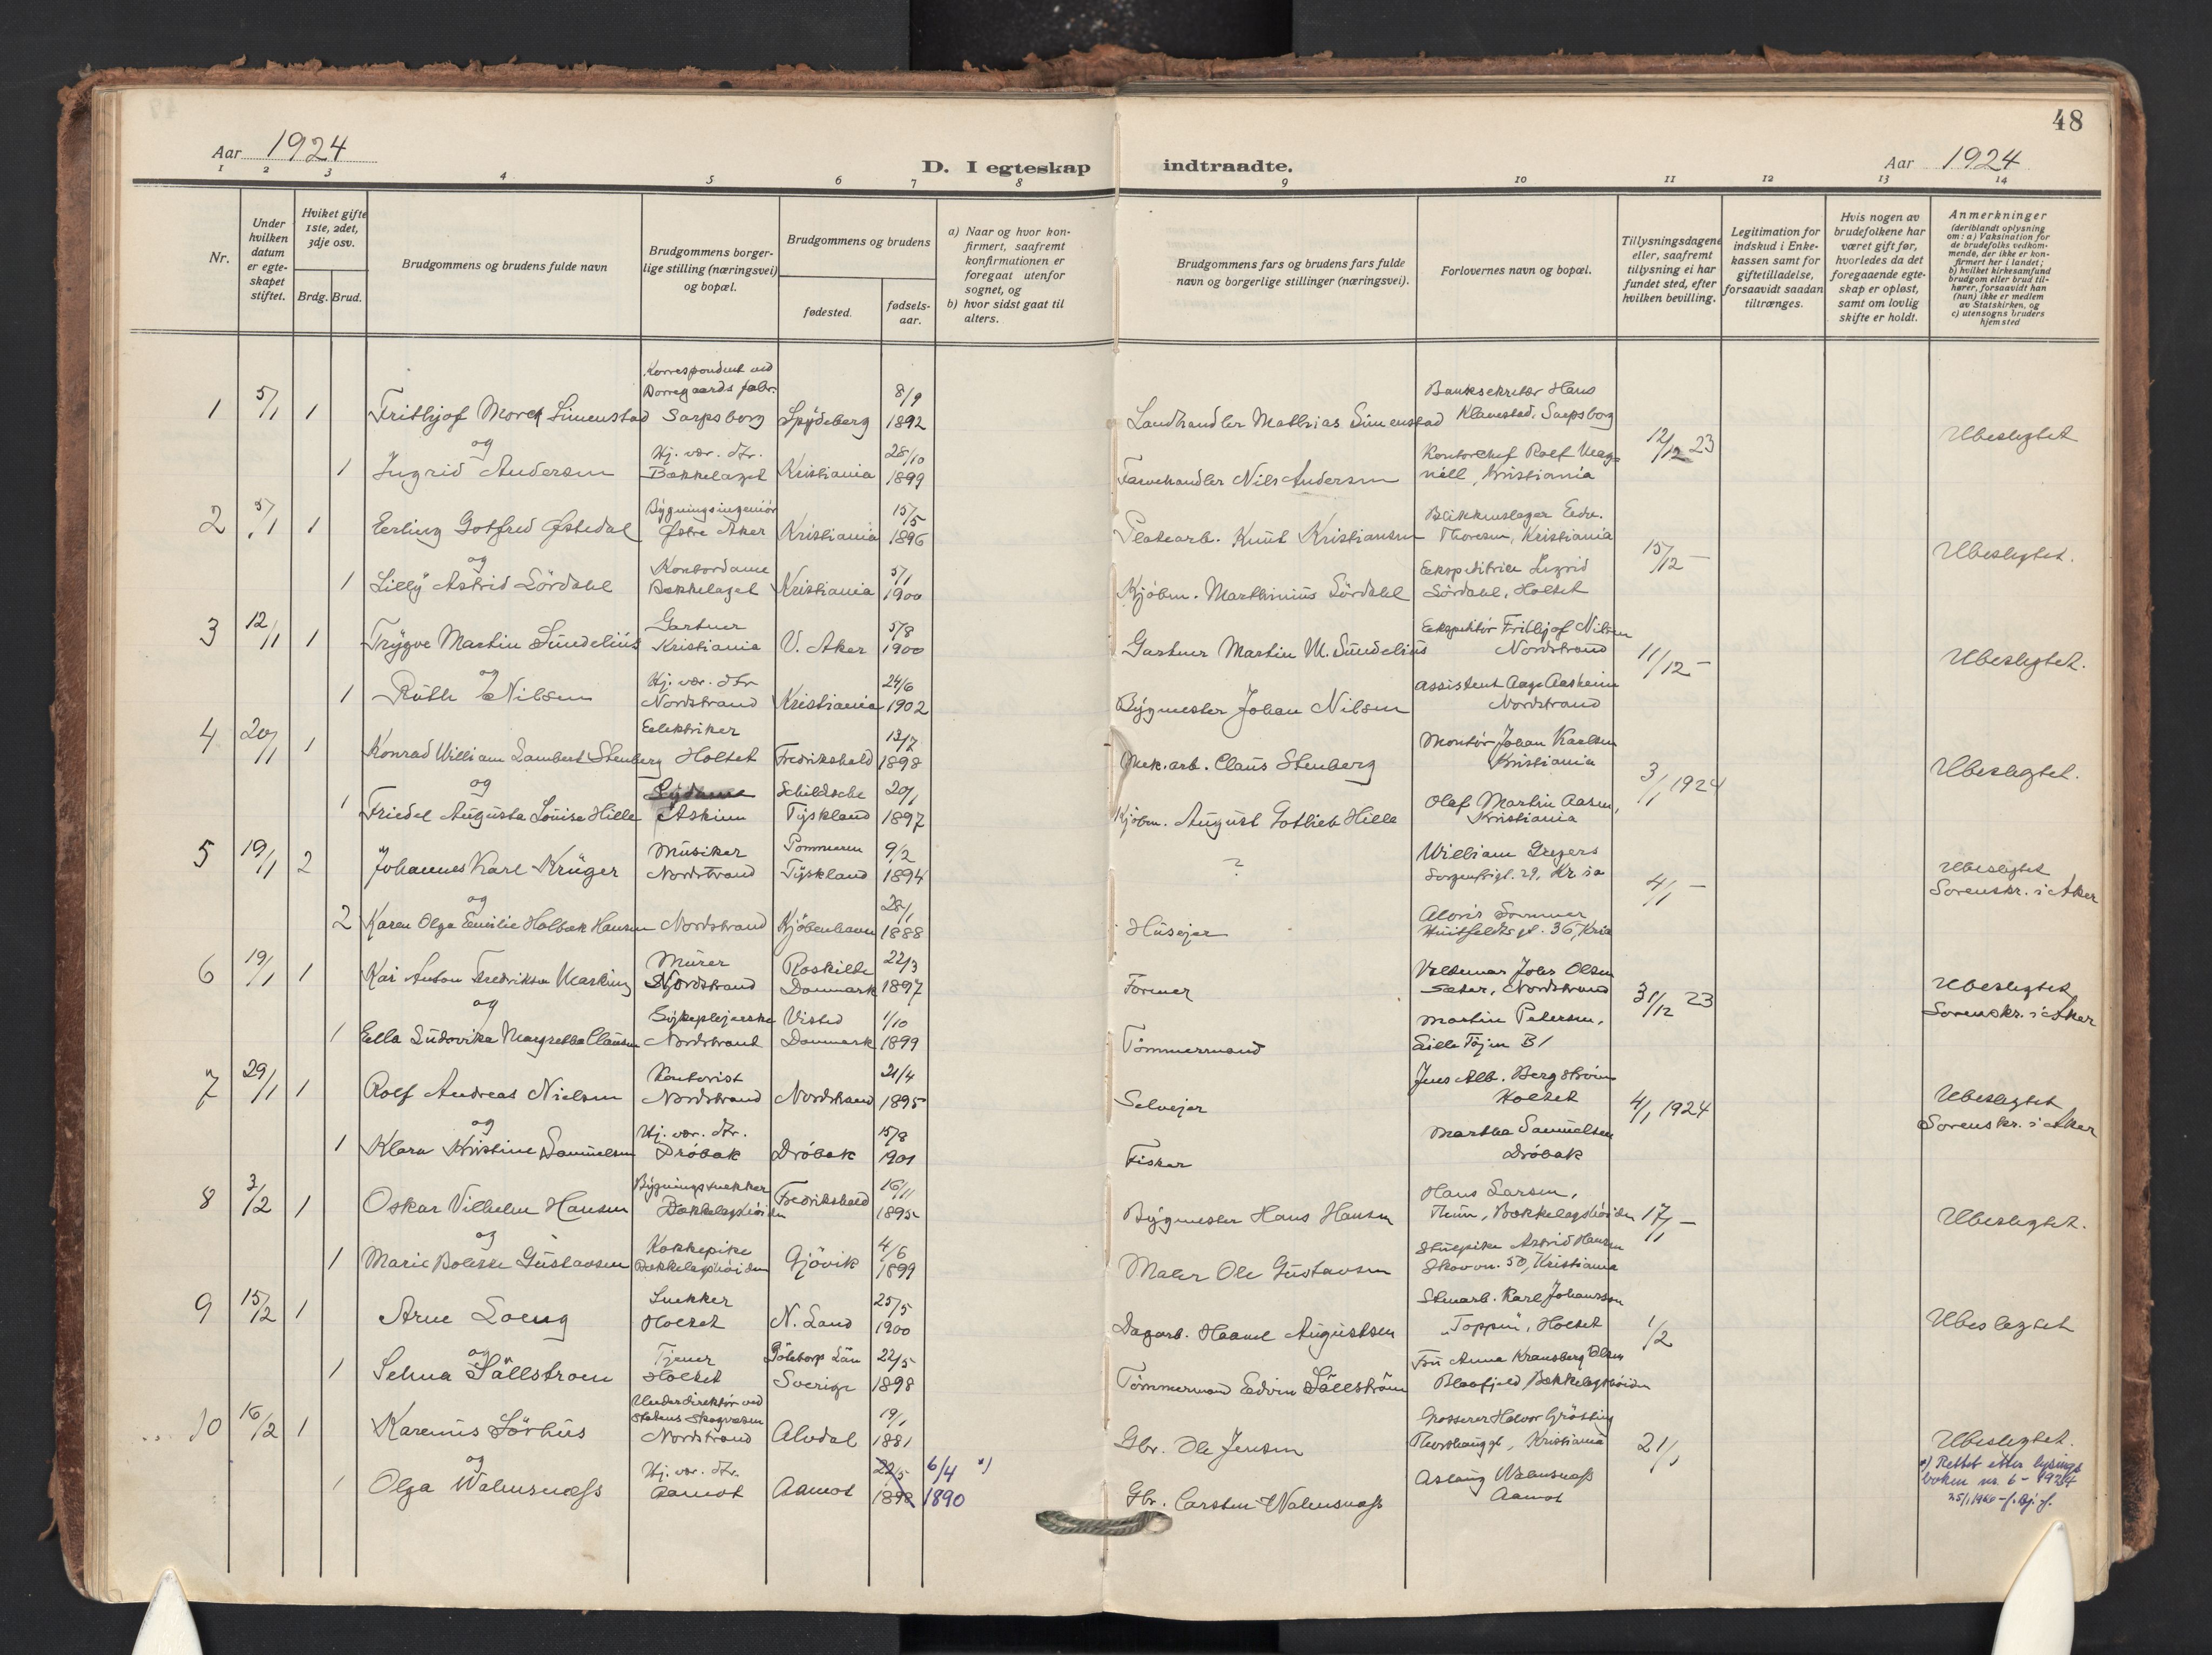 48
Aar 1924
D. I egteskap indtraadte.
Aar 1924
1 2 3 4 5 6 7 8 9 10 11 12 13 14
Nr.
Under hvilken datum er egte- skapet stiftet.
Hviket gifte 1ste, 2det, 3dje osv.
Brdg. Brud.
Brudgommens og brudens fulde navn
Brudgommens borger- lige stilling (næringsvei) og bopæl.
Brudgommens og brudens
fødested.
fødsels- aar.
a) Naar og hvor kon- firmert, saafremt konfirmationen er foregaat utenfor sognet, og
b) hvor sidst gaat til alters.
Brudgommens fars og brudens fars fulde navn og borgerlige stillinger (næringsvei).
Forlovernes navn og bopæl.
Tillysningsdagene eller, saafremt tillysning ei har fundet sted, efter hvilken bevilling.
Legitimation for indskud i Enke- kassen samt for giftetilladelse, forsaavidt saadan tiltrænges.
Hvis nogen av brudefolkene har været gift før, hvorledes da det foregaaende egte- skap er opløst, samt om lovlig skifte er holdt.
Anmerkninger (deriblandt oplysning om: a) Vaksination for de brudefolks vedkom- mende, der ikke er kon- firmert her i landet; b) hvilket kirkesamfund brudgom eller brud til- hører, forsaavidt han (hun) ikke er medlem av Statskirken, og c) utensogns bruders hjemsted
Korrespondent ved
Borregaards fabr.
1 5/1 1 Frithjof Simenstad Sarpsborg Spydeberg 8/9 1892 Landhandler Mathias Simenstad Banksekretær Hans Klavestad, Sarpsborg
og
1 Ingrid Andersen Hj. vær. dtr. Bækkelaget Kristiania 28/10 1899 Farvehandler Nils Andersen Kontorchef Rolf Kristiania 12/12 23 Ubeslegtet
2 5/1 1 Erling Gotfred Østedal Bygningsingeniör Østre Aker Kristiania 15/5 1896 Platearb. Knut Kristiansen Blikkenslager Edv. Thoresen, Kristiania
og
1 Lilly Astrid Sördahl Kontordame Bækkelaget Kristiania 5/1 1900 Kjöbm. Marthinius Sördahl Ekspeditrice Sördahl, Holtet 15/12 - Ubeslegtet.
3 12/1 1 Trygve Martin Sundelius Gartner Kristiania V. Aker 5/8 1900 Gartner Martin M. Sundelius Ekspeditör Frithjof Nilsen Nordstrand
og
1 Ruth Nilsen Hj. vær. dtr Nordstrand Kristiania 24/6 1902 Bygmester Johan Nilsen Assistent Aage Aasheim Nordstrand 11/12 - Ubeslegtet.
4 20/1 1 Konrad William Lambert Stenberg Elektriker Holtet Fredrikshald 13/7 1898 Mek.arb. Claus Stenberg Montör Johan Karlsen Kristiania
og
1 Friedel Augusta Louise Hille Askim Schildsche Tyskland 20/1 1897 Kjöbm. August Gotlieb Hille Olaf Martin Aasen, Kristiania 3/1 1924 Ubeslegtet.
5 19/1 2 Johannes Karl Krüger Musiker Nordstrand Pommern Tyskland 9/2 1894 ? William Sorgenfrigt. 29, Kr.ia
og
2 Karen Olga Emilie Holbæk Hansen Nordstrand Kjöbenhavn 28/1 1888 Huseier Alovis Sommer Huitfeldts gt. 36, Kria 4/1 - Ubeslegtet Sorenskr. i Aker
6 19/1 1 Kai Anton Fredriksen Murer Nordstrand Roskilde Danmark 22/3 1897 Former Valdemar Johs Olsen Sæter, Nordstrand
og
1 Ella Ludovika Margretha Clausen Sykepleierske Nordstrand Danmark 1/10 1899 Tömmermand Martin Petersen, Lille Töjen B1 31/12 23 Ubeslegtet Sorenskr. i Aker
7 29/1 1 Rolf Andreas Nielsen Kontorist Nordstrand Nordstrand 21/4 1895 Selveier Jens Alb. Bergström Holtet
og
1 Klara Kristine Samuelsen Hj. vær. dtr. Dröbak Dröbak 15/8 1901 Fisker Martha Samuelsen Dröbak 4/1 1924 Ubeslegtet Sorenskr. i Aker
8 3/2 1 Oskar Vilhelm Hansen Bygningssnekker Bækkelagshöiden Fredrikshald 16/11 1895 Bygmester Hans Hansen Hans Larsen, Bækkelagshöiden
og
1 Marie Boletta Gustavsen Kokkepike Bækkelagshöiden Gjövik 4/6 1899 Maler Ole Gustavsen Stuepike Astrid Hansen Skovvn. 50, Kristiania 17/1 - Ubeslegtet.
9 15/2 1 Arne Loeng Snekker Holtet N. Land 25/5 1900 Dagarb. Augustsen Stenarb. Karl Johansson "Toppen", Holtet
og
1 Selma Sällstrom Tjener Holtet Göteborgs Län Sverige 22/5 1898 Tömmermand Edvin Sällström Fru Anna Kransberg Olsen Blaafjeld, Bækkelagshöiden 1/2 Ubeslegtet
10 16/2 1 Karenius Sörhus Underdirektör ved Statens Skogvæsen Nordstrand Alvdal 19/1 1881 Gbr. Ole Jensen Grosserer Halvor Grötting Kristiania
og
1 Olga Walmsnæss Hj. vær. dtr. Aamot Aamot 22/5 1898 6/4 1890 *) Gbr. Carsten Walmsnæss Aslaug Walmsnæss Aamot 21/1 Ubeslegtet.
*) Rettet etter lysings
boken nr. 6 - 1924